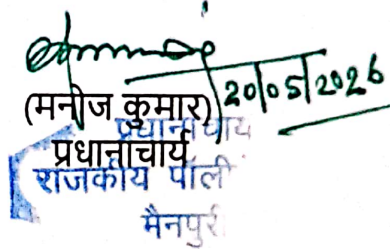 20/05/2026
(मनोज कुमार)
प्रधानाचार्य
प्रधानाचार्य
राजकीय पॉली
मैनपुरी